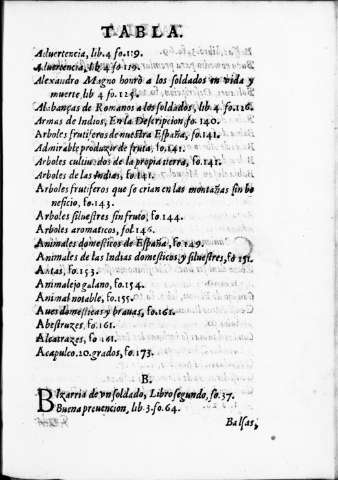 TABLA.
Aduertencia, lib. 4. fo. 119.
Aduertencia, lib. 4 fo 119.
Alexandro Magno honrò a los soldados en vida y
muerte, lib 4 fo. 125.
Alabanças de Romanos a los soldados, lib 4. fo. 126.
Armas de Indios, En la Descripcion, fo. 140.
Arboles frutiferos de nuestra España, fo. 141.
Admirable produzir de fruta, fo. 141.
Arboles cultiuados de la propia tierra, fo. 141.
Arboles de las Indias, fo. 141.
Arboles frutiferos que se crian en las montañas sin be
neficio, fo. 143.
Arboles siluestres sin fruto, fo. 144.
Arboles aromaticos, fol 146.
Animales domesticos de España, fo. 149.
Animales de las Indias domesticos, y siluestres, fo 151.
Antas, fo. 153.
Animalejo galano, fo. 154.
Animal notable, fo. 155.
Aues domesticas y brauas, fo. 161.
Abestruzes, fo. 161.
Alcatrazes, fo 161.
Acapulco. 20. grados, fo. 173.
B.
BIzarria de vn soldado, Libro segundo, fo. 37.
Buena preuencion, lib. 3. fo. 64.
Balsas,